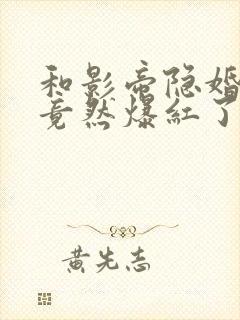 和影帝隐婚
竟然爆红了
黄先志